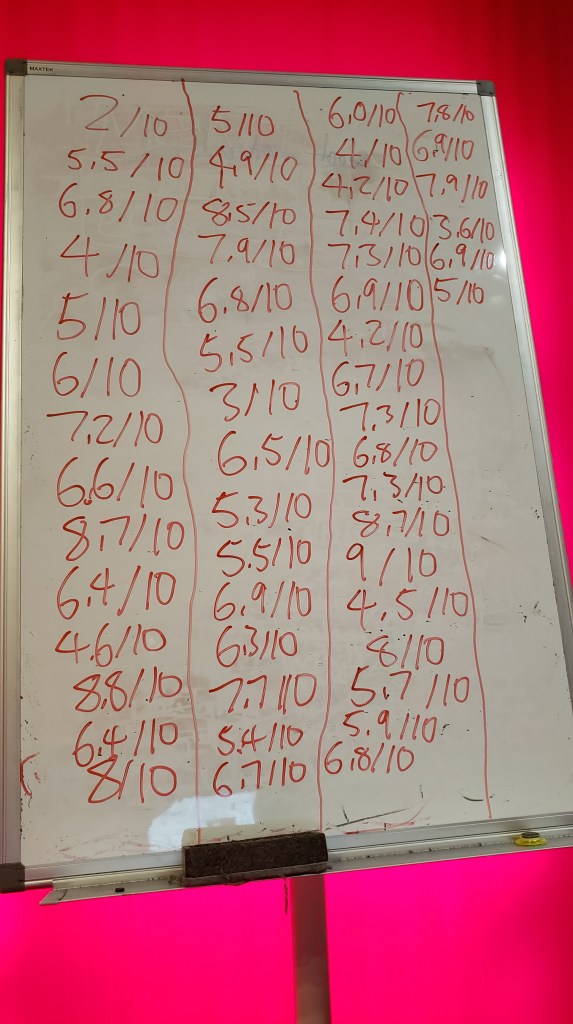 MAXTEK
2/10
5.5/10
6.8/10
4/10
5/10
6/10
7.2/10
6.6/10
8.7/10
6.4/10
4.6/10
8.8/10
6.4/10
8/10
5/10
4.9/10
8.5/10
7.9/10
6.8/10
5.5/10
3/10
6.5/10
5.3/10
5.5/10
6.9/10
6.3/10
7.7/10
5.4/10
6.7/10
6.0/10
4/10
4.2/10
7.4/10
7.3/10
6.9/10
4.2/10
6.7/10
7.3/10
6.8/10
7.3/10
8.7/10
9/10
4.5/10
8/10
5.7/10
5.9/10
6.8/10
7.8/10
6.9/10
7.9/10
3.6/10
6.9/10
5/10